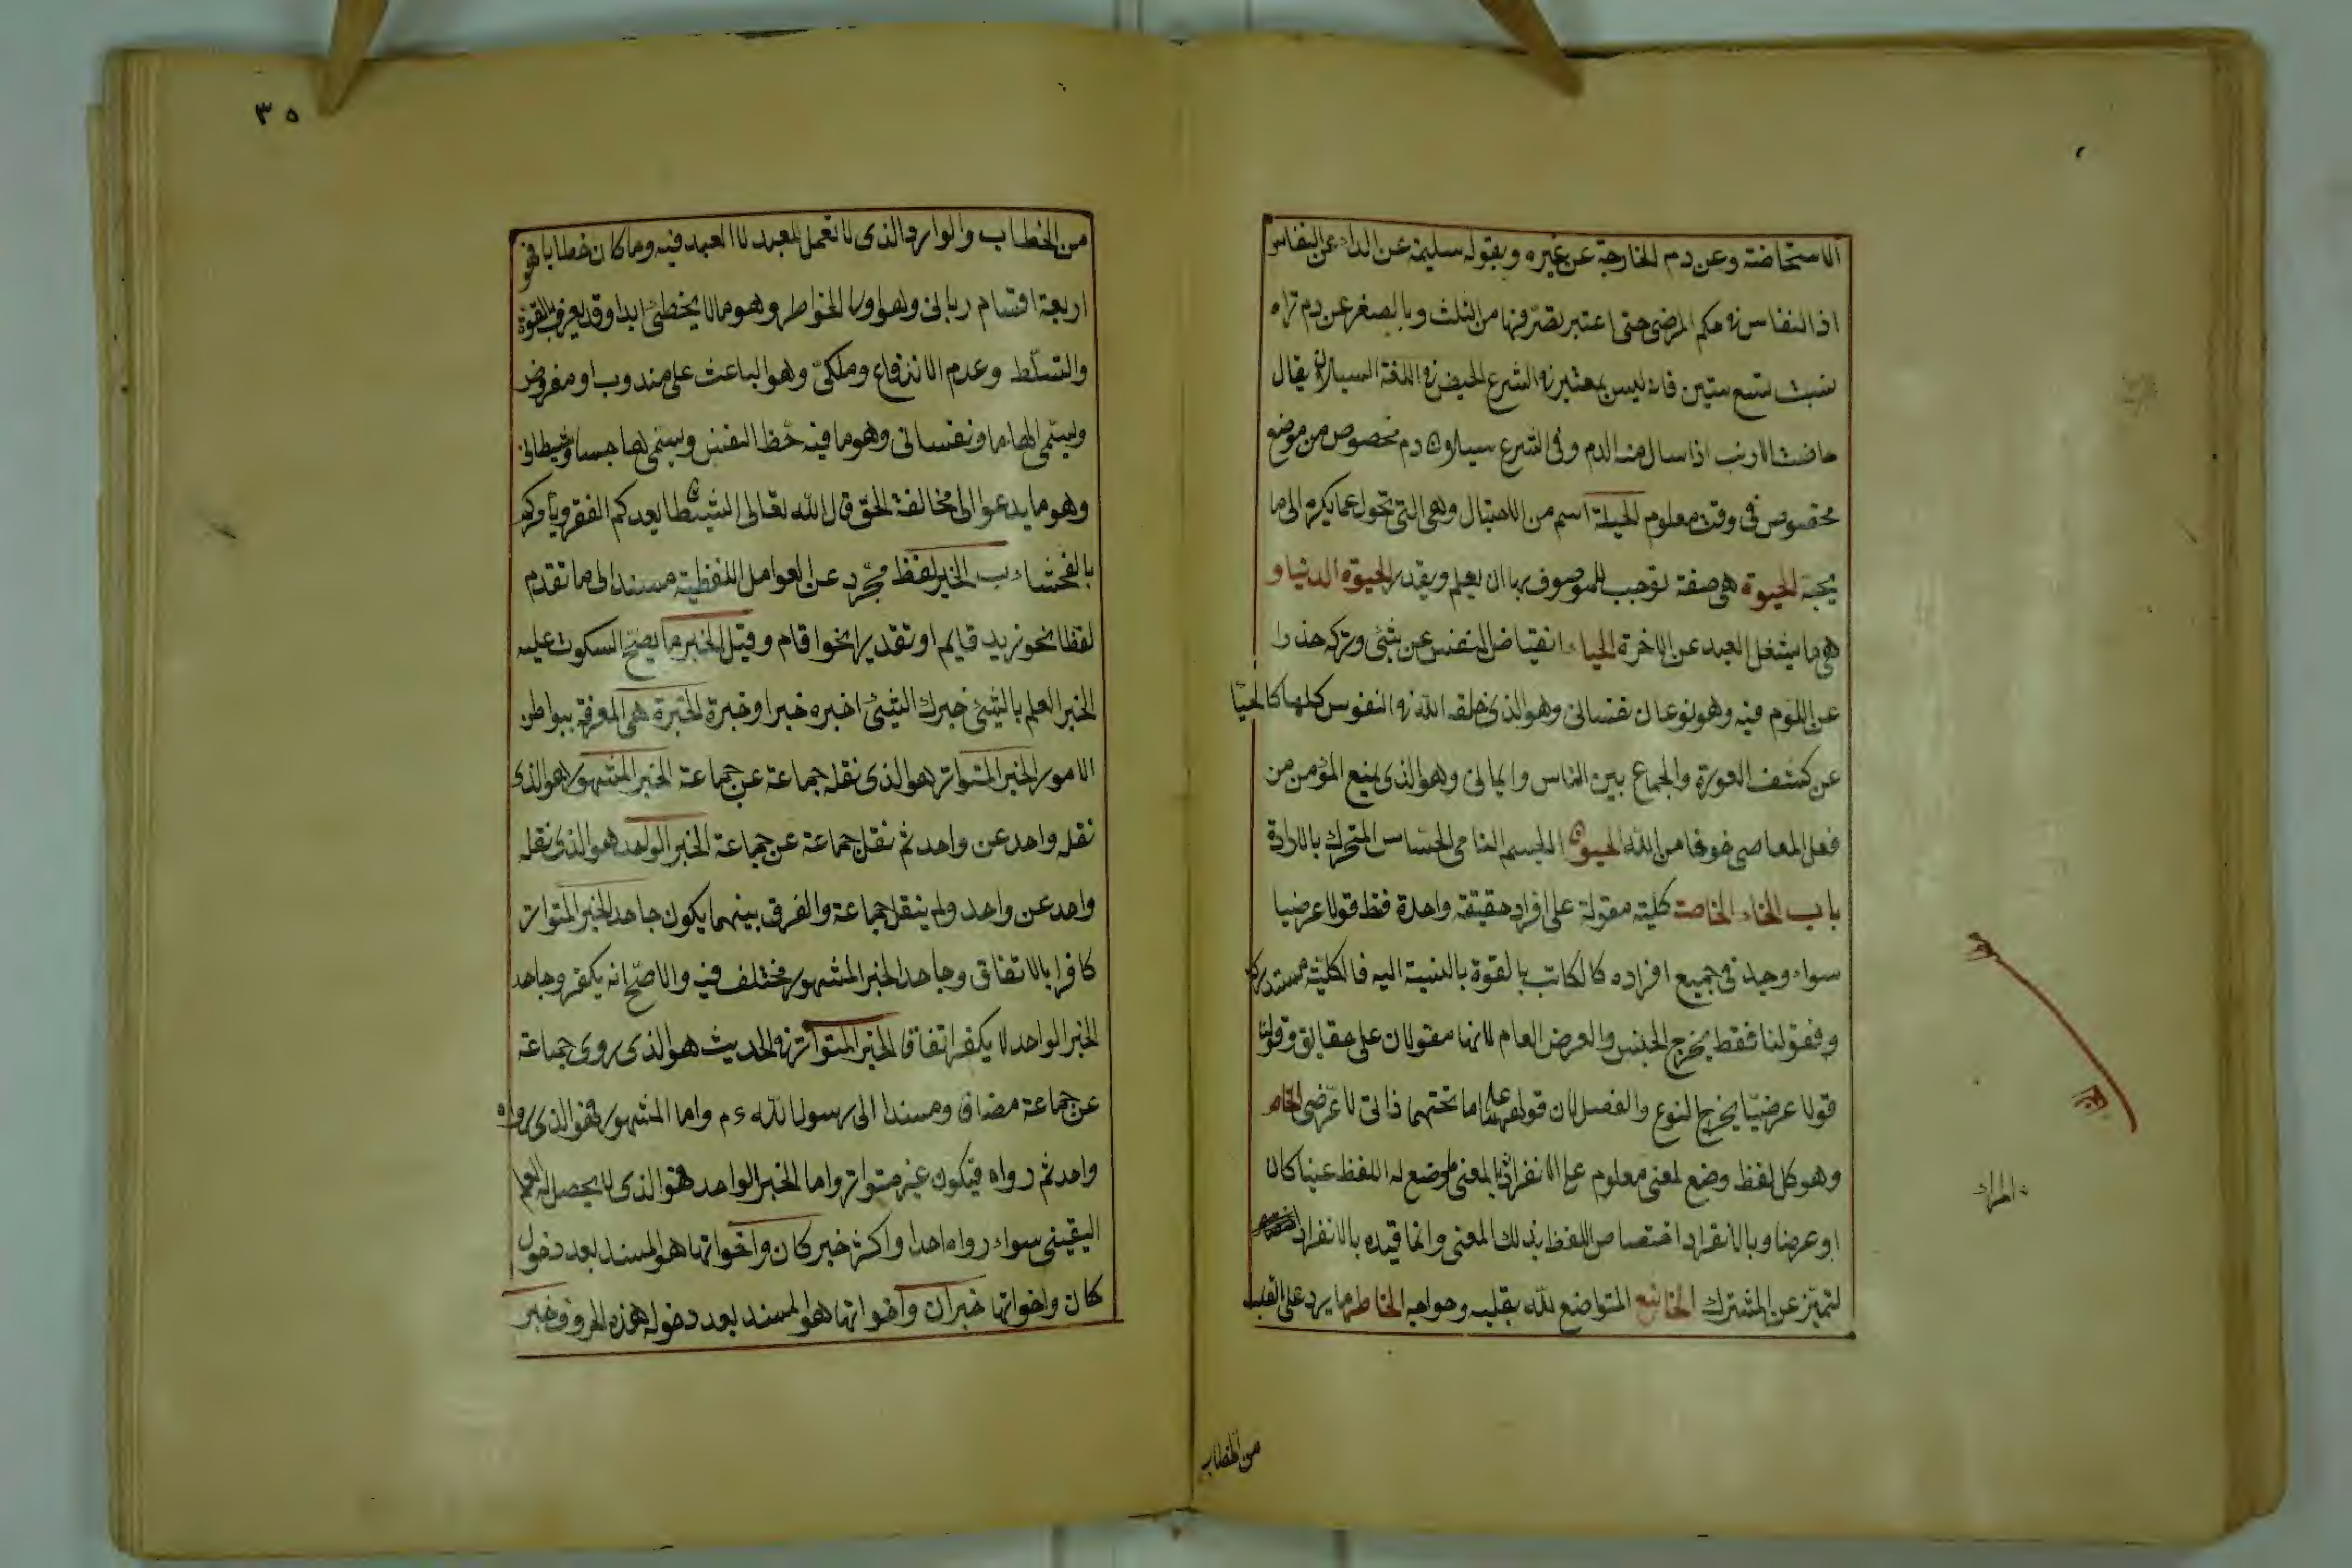 الاستحاضة وعن دم الخارجة عن غيره وبقوله سليمة عن الداء عن النفاس
اذ النفاس في حكم المرضى حتى اعتبر تصرفها من الثلث وبالصغر عن دم تراه
بنت تسع سنين فانه ليس بمعتبر في الشرع الحيض في اللغة السيلان يقال
حاضت الارنب اذا سال منه الدم وفي الشرع سيلان دم مخصوص من موضع
مخصوص في وقت معلوم الحيلة اسم من الاحتيال وهي التي تحول عما يكره الى ما
يحبه الحيوة هي صفة توجب للموصوف بها ان يعلم ويقدر الحيوة الدنيا و
هي ما يشغل العبد عن الاخرة الحياء انقباض النفس عن شئ وتركه حذرا
عن اللوم فيه وهو نوعان نفساني وهو الذي خلقه الله في النفوس كلها كالحيا
عن كشف العورة والجماع بين الناس وايماني وهو الذي يمنع المؤمن من
فعل المعاصي خوفا من الله الحيوان الجسم النامي الحساس المتحرك بالارادة
باب الخاء الخاصة كلية مقولة على افراد حقيقة واحدة فقط قولا عرضيا
سواء وجد في جميع افراده كالكاتب بالقوة بالنسبة اليه فالكلية مستدركة
وفقولنا فقط يخرج الجنس والعرض العام لانهما مقولان على حقايق وقولنا
قولا عرضيا يخرج النوع والفصل لان قولهما على ما تحتهما ذاتي لا عرضي الخاص
وهو كل لفظ وضع لمعنى معلوم على الانفراد بالمعنى ما وضع له اللفظ عينا كان
او عرضا وبالانفراد اختصاص اللفظ بذلك المعنى وانما قيده بالانفراد
لتميز عن المشترك الخاشع المتواضع لله بقلبه وجوارحه الخاطر ما يرد على القلب
من الخطاب
٣٥
من الخطاب والوارد الذي لا تعمل للعبد لا العبد فيه وما كان خطابا فهو
اربعة اقسام رباني وهو اول الخواطر وهو ما لا يخطئ ابدا وقد يعرف بالقوة
والتسلط وعدم الاندفاع وملكي وهو الباعث على مندوب او مفروض
ويسمى الهاما ونفساني وهو ما فيه حظ النفس ويسمى هاجسا وشيطاني
وهو ما يدعو الى مخالفة الحق قال الله تعالى الشيطان يعدكم الفقر ويأمركم
بالفحشاء ب الخبر لفظ مجرد عن العوامل اللفظية مسند الى ما تقدم
لفظا نحو زيد قايم او تقديرا نحو اقام وقيل الخبر ما يصح السكوت عليه
الخبر العلم بالشئ خبرك الشئ اخبره خبرا وخبرة الخبرة هي المعرفة ببواطن
الامور الخبر المتواتر هو الذي نقله جماعة عن جماعة الخبر المشهور هو الذي
نقله واحد عن واحد ثم نقل جماعة عن جماعة الخبر الواحد هو الذي نقله
واحد عن واحد ولم ينقل جماعة والفرق بينهما يكون جاحد الخبر المتواتر
كافرا بالاتفاق وجاحد الخبر المشهور مختلف فيه والاصح انه يكفر وجاحد
الخبر الواحد لا يكفر اتفاقا الخبر المتواتر في الحديث هو الذي روى جماعة
عن جماعة مضاف ومسندا الى رسول الله ء م واما المشهور فهو الذي رواه
واحد ثم رواه فيكون غير متواتر واما الخبر الواحد فهو الذي لا يحصل له العلم
اليقيني سواء رواه احد او اكثر خبر كان واخواتها هو المسند بعد دخول
كان واخواتها خبر ان واخواتها هو المسند بعد دخوله هذه الحروف خبر